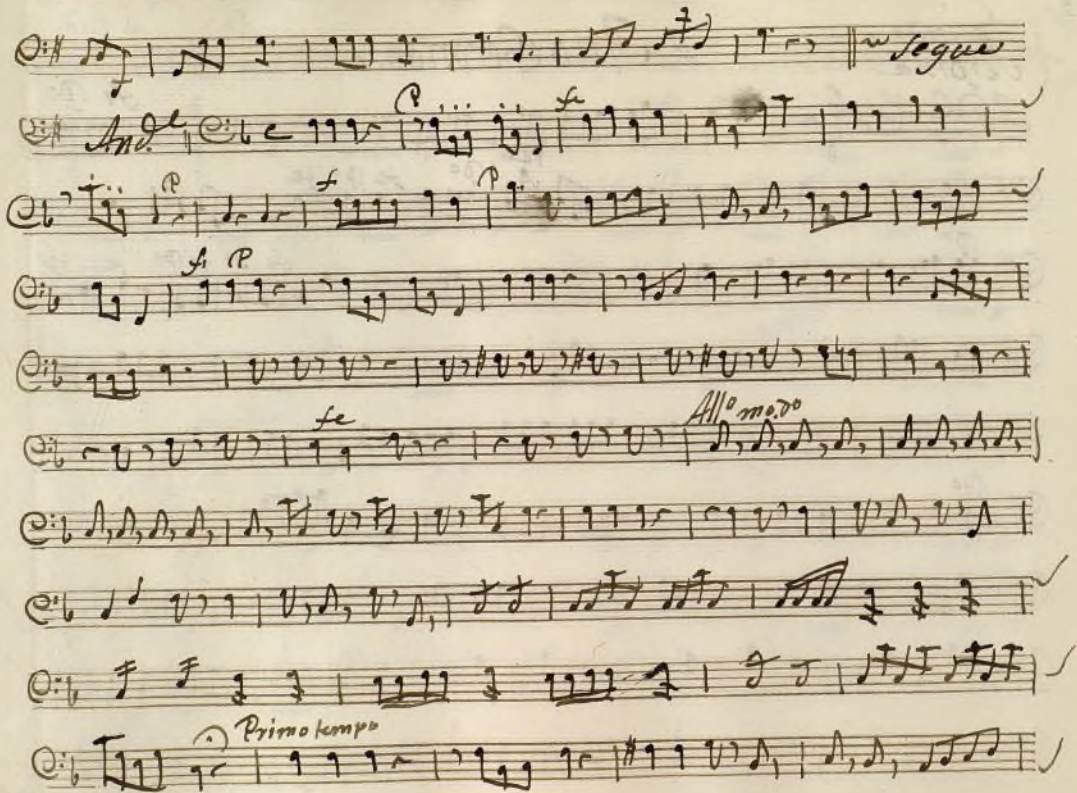 Segue
And.e P fe
P f P
f. P
fe All.o mo.do
Primo tempo